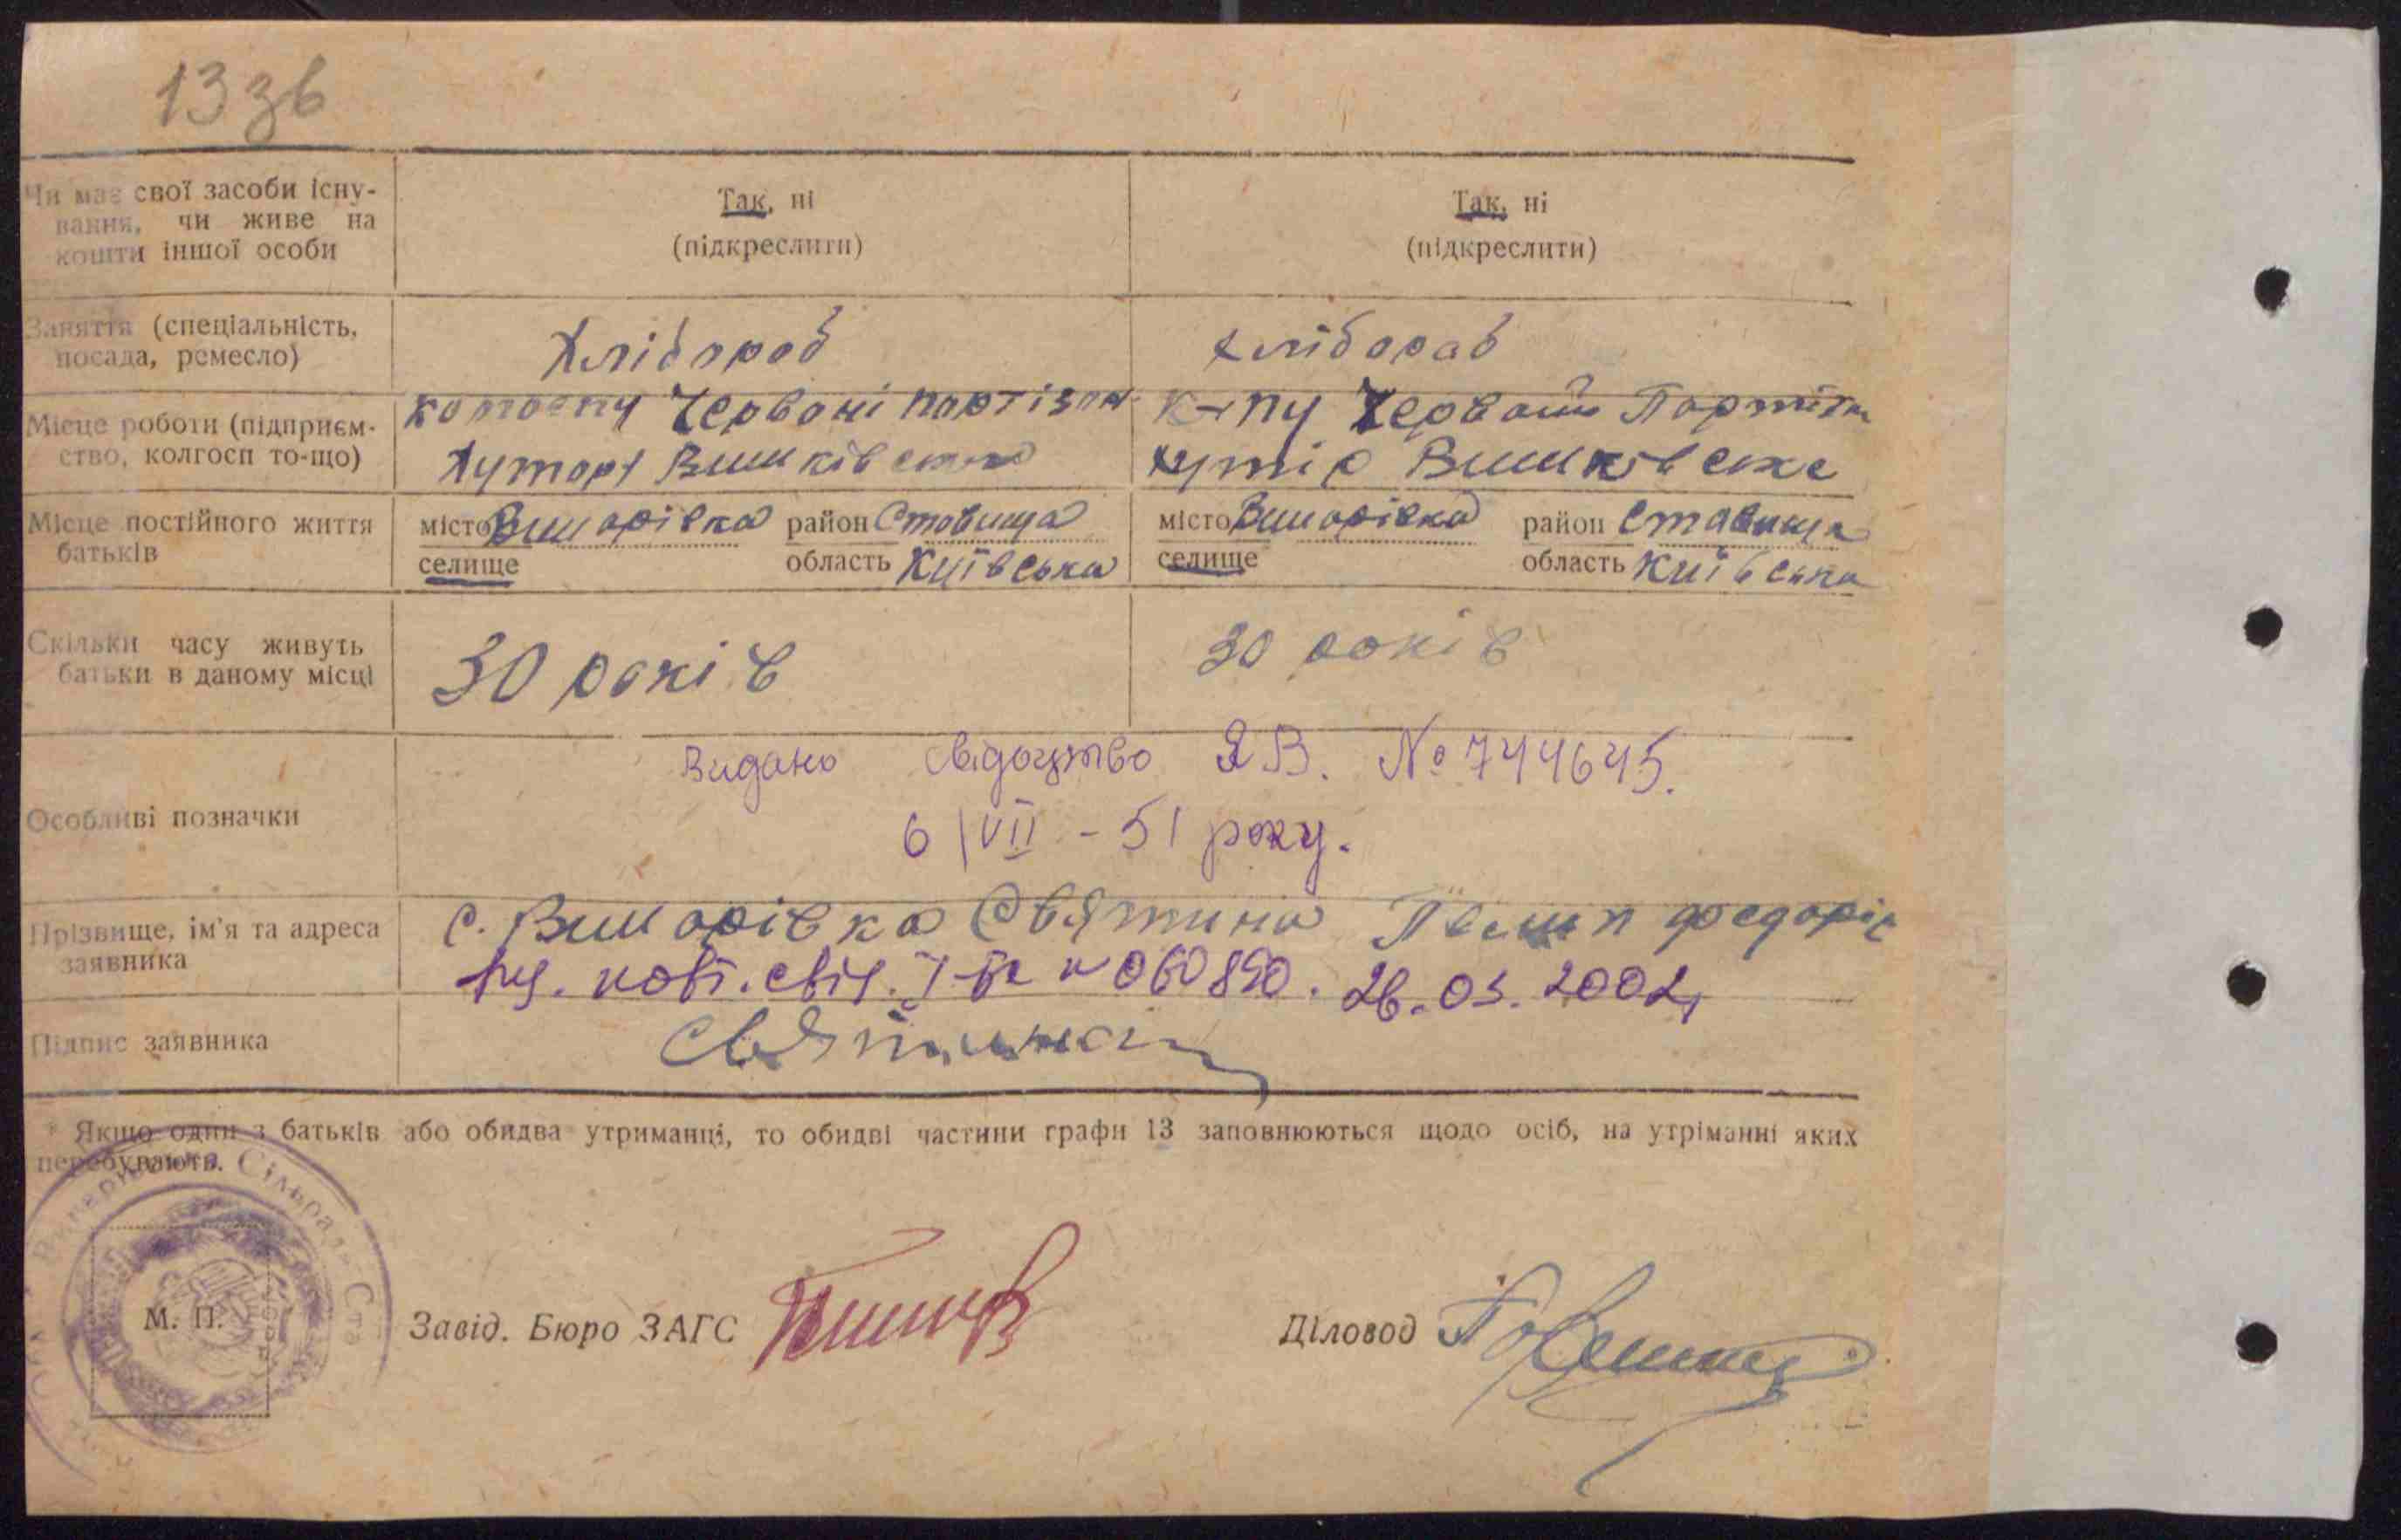 13 зв
Чи має свої засоби існу-
вання, чи живе на
кошти іншої особи
Так, ні
(підкреслити)
Так, ні
(підкреслити)
Заняття (спеціальність,
посада, ремесло)
Хлібороб
хлібораб
Місце роботи (підприєм-
ство, колгосп то-що)
колгоспу Червоні партізан
Хутор
К-пу Червоні Партизан
хутір
Місце постійного життя
батьків
місто Винарівка район Ставища
селище область Київська
місто Винарівка район Ставища
селище область Київська
Скільки часу живуть
батьки в даному місці
30 років
30 років
Особливі позначки
Видано свідоцтво ЯВ. № 744645.
6/VII - 51 року.
Прізвище, ім'я та адреса
заявника
с. Винарівка Святина федоріс
повт. свід. І-БК № 060890. 26.03.2002,
Підпис заявника
* Якщо один з батьків або обидва утриманці, то обидві частини графи 13 заповнюються щодо осіб, на утріманні яких
перебувають.
Сільрада Ста
М. П.
Завід. Бюро ЗАГС
Діловод